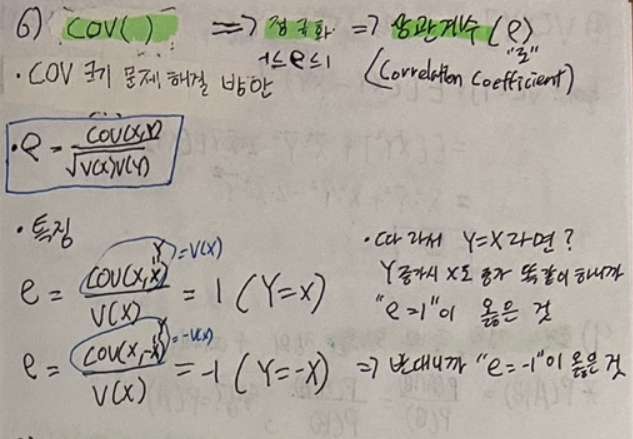 6) COV( ) => 정규화 => 상관계수(ρ)
-1≤ρ≤1 "로"
· COV 크기 문제 해결 방안 (Correlation Coefficient)
· ρ = COV(X,Y) / √V(X)V(Y)
· 특징
ρ = COV(X,X) / V(X) = 1 (Y=X)
Y =V(X)
ρ = COV(X,-X) / V(X) = -1 (Y=-X)
Y =-V(X)
· 따라서 Y=X라면?
Y 증가시 X도 증가 똑같이 하니까
"ρ=1"이 옳은 것
=> 반대니까 "ρ=-1"이 옳은 것